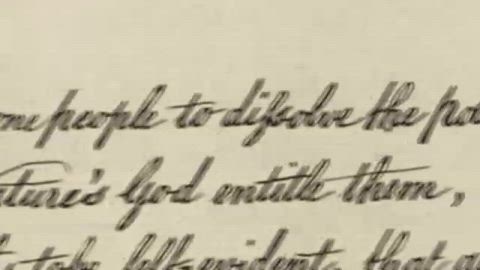 one people to diſsolve the pol
ature's God entitle them,
to be self-evident, that a